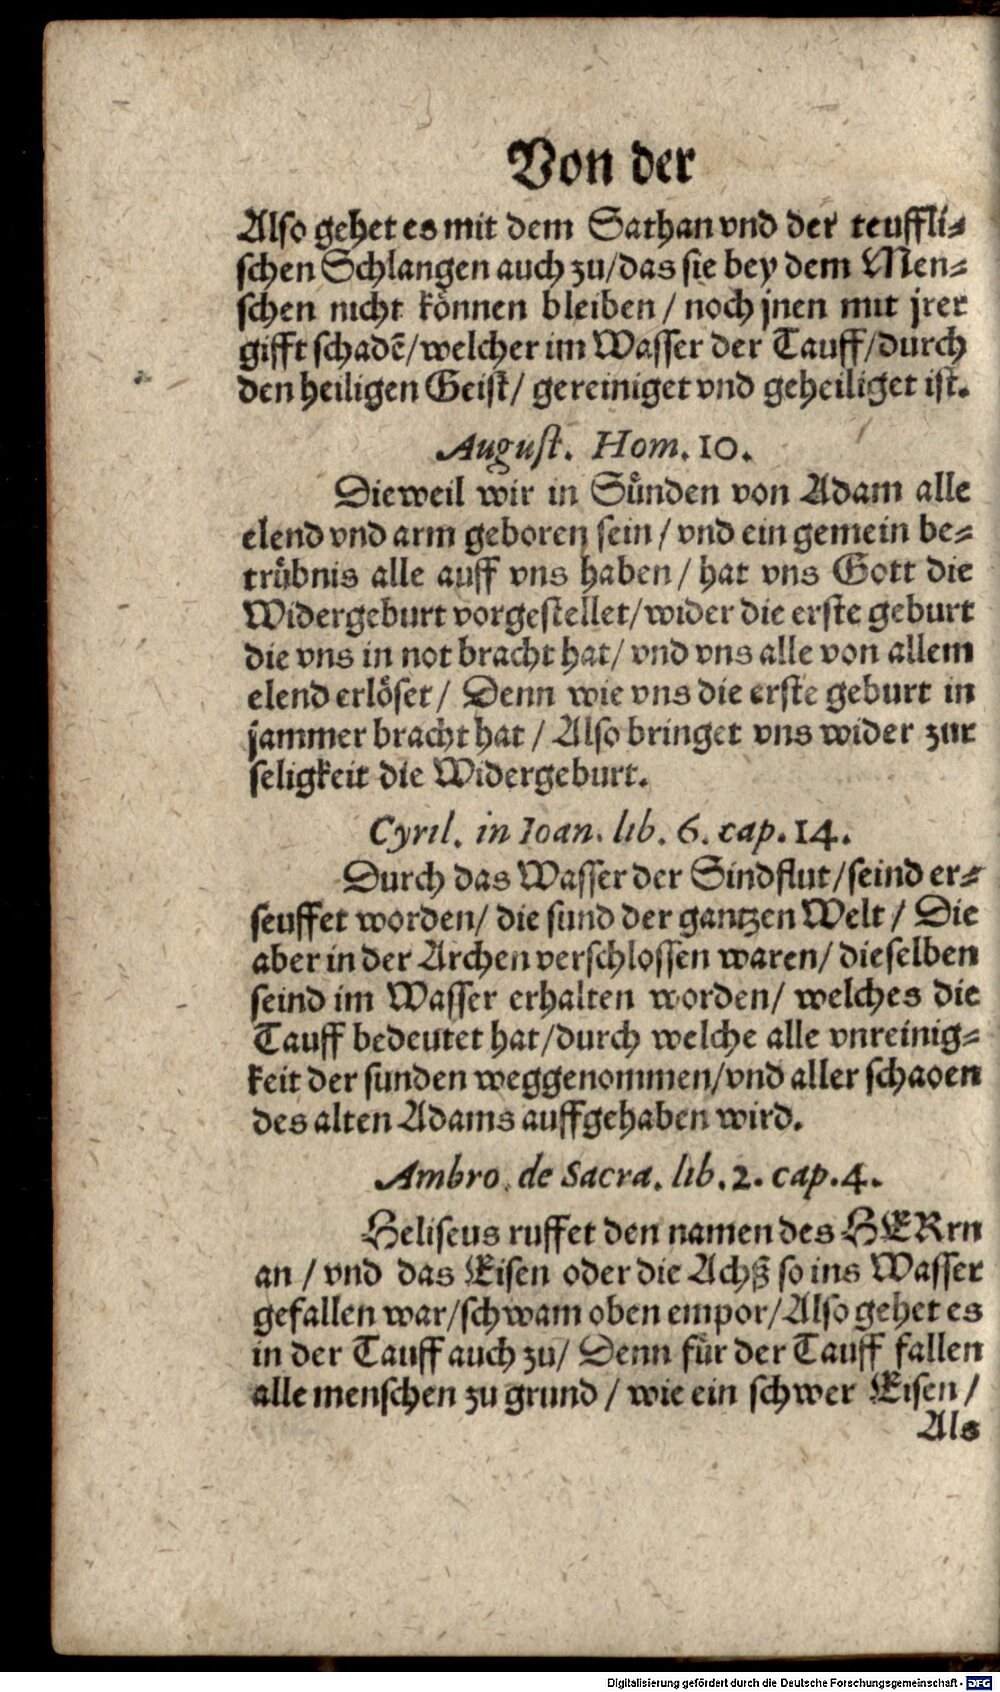 Von der
Also gehet es mit dem Sathan vnd der teuffli⸗
schen Schlangen auch zu/das sie bey dem Men⸗
schen nicht können bleiben / noch jnen mit jrer
gifft schadẽ/welcher im Wasser der Tauff/durch
den heiligen Geist/ gereiniget vnd geheiliget ist.
August. Hom. 10.
Dieweil wir in Sünden von Adam alle
elend vnd arm geboren sein / vnd ein gemein be⸗
trübnis alle auff vns haben / hat vns Gott die
Widergeburt vorgestellet/wider die erste geburt
die vns in not bracht hat/ vnd vns alle von allem
elend erlöset / Denn wie vns die erste geburt in
jammer bracht hat / Also bringet vns wider zur
seligkeit die Widergeburt.
Cyril. in Ioan. lib. 6. cap. 14.
Durch das Wasser der Sindflut/seind er⸗
seuffet worden/ die sund der gantzen Welt / Die
aber in der Archen verschlossen waren/ dieselben
seind im Wasser erhalten worden/ welches die
Tauff bedeutet hat/durch welche alle vnreinig⸗
keit der sunden weggenommen/vnd aller schaden
des alten Adams auffgehaben wird.
Ambro. de Sacra. lib. 2. cap. 4.
Heliseus ruffet den namen des HERrn
an / vnd das Eisen oder die Achß so ins Wasser
gefallen war/schwam oben empor/Also gehet es
in der Tauff auch zu/ Denn für der Tauff fallen
alle menschen zu grund / wie ein schwer Eisen /
Als
Digitalisierung gefördert durch die Deutsche Forschungsgemeinschaft - DFG